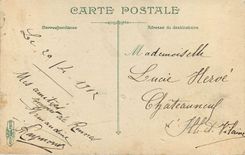 CARTE POSTALE
Correspondance
Adresse du destinataire
Le 29/4 1912
Mes amitiés
Raymond
Mademoiselle
Lucie Hervé
Châteauneuf
Ille et Vilaine